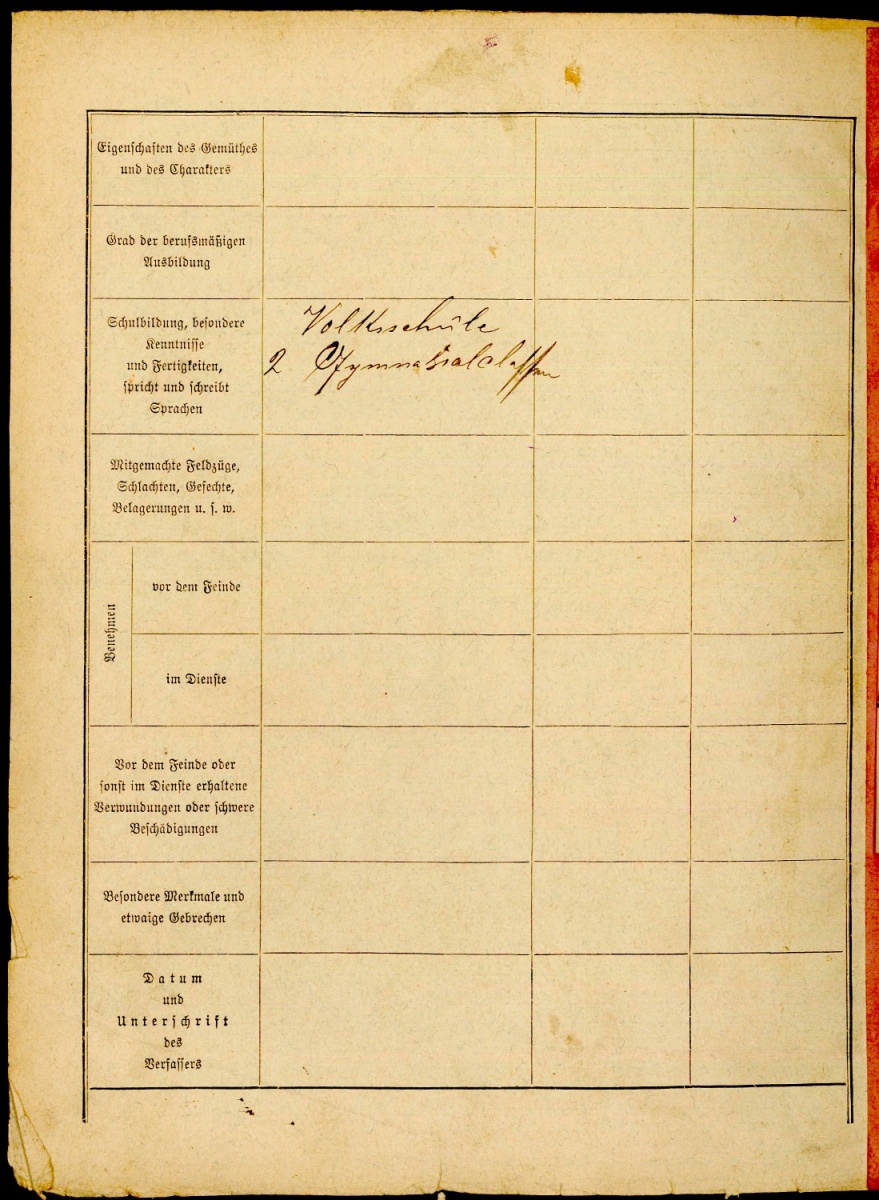 Eigenschaften des Gemüthes
und des Charakters
Grad der berufsmäßigen
Ausbildung
Schulbildung, besondere
Kenntnisse
und Fertigkeiten,
spricht und schreibt
Sprachen
Volksschule
2 Gymnasialclassen
Mitgemachte Feldzüge,
Schlachten, Gefechte,
Belagerungen u. s. w.
Benehmen
vor dem Feinde
im Dienste
Vor dem Feinde oder
sonst im Dienste erhaltene
Verwundungen oder schwere
Beschädigungen
Besondere Merkmale und
etwaige Gebrechen
Datum
und
Unterschrift
des
Verfassers